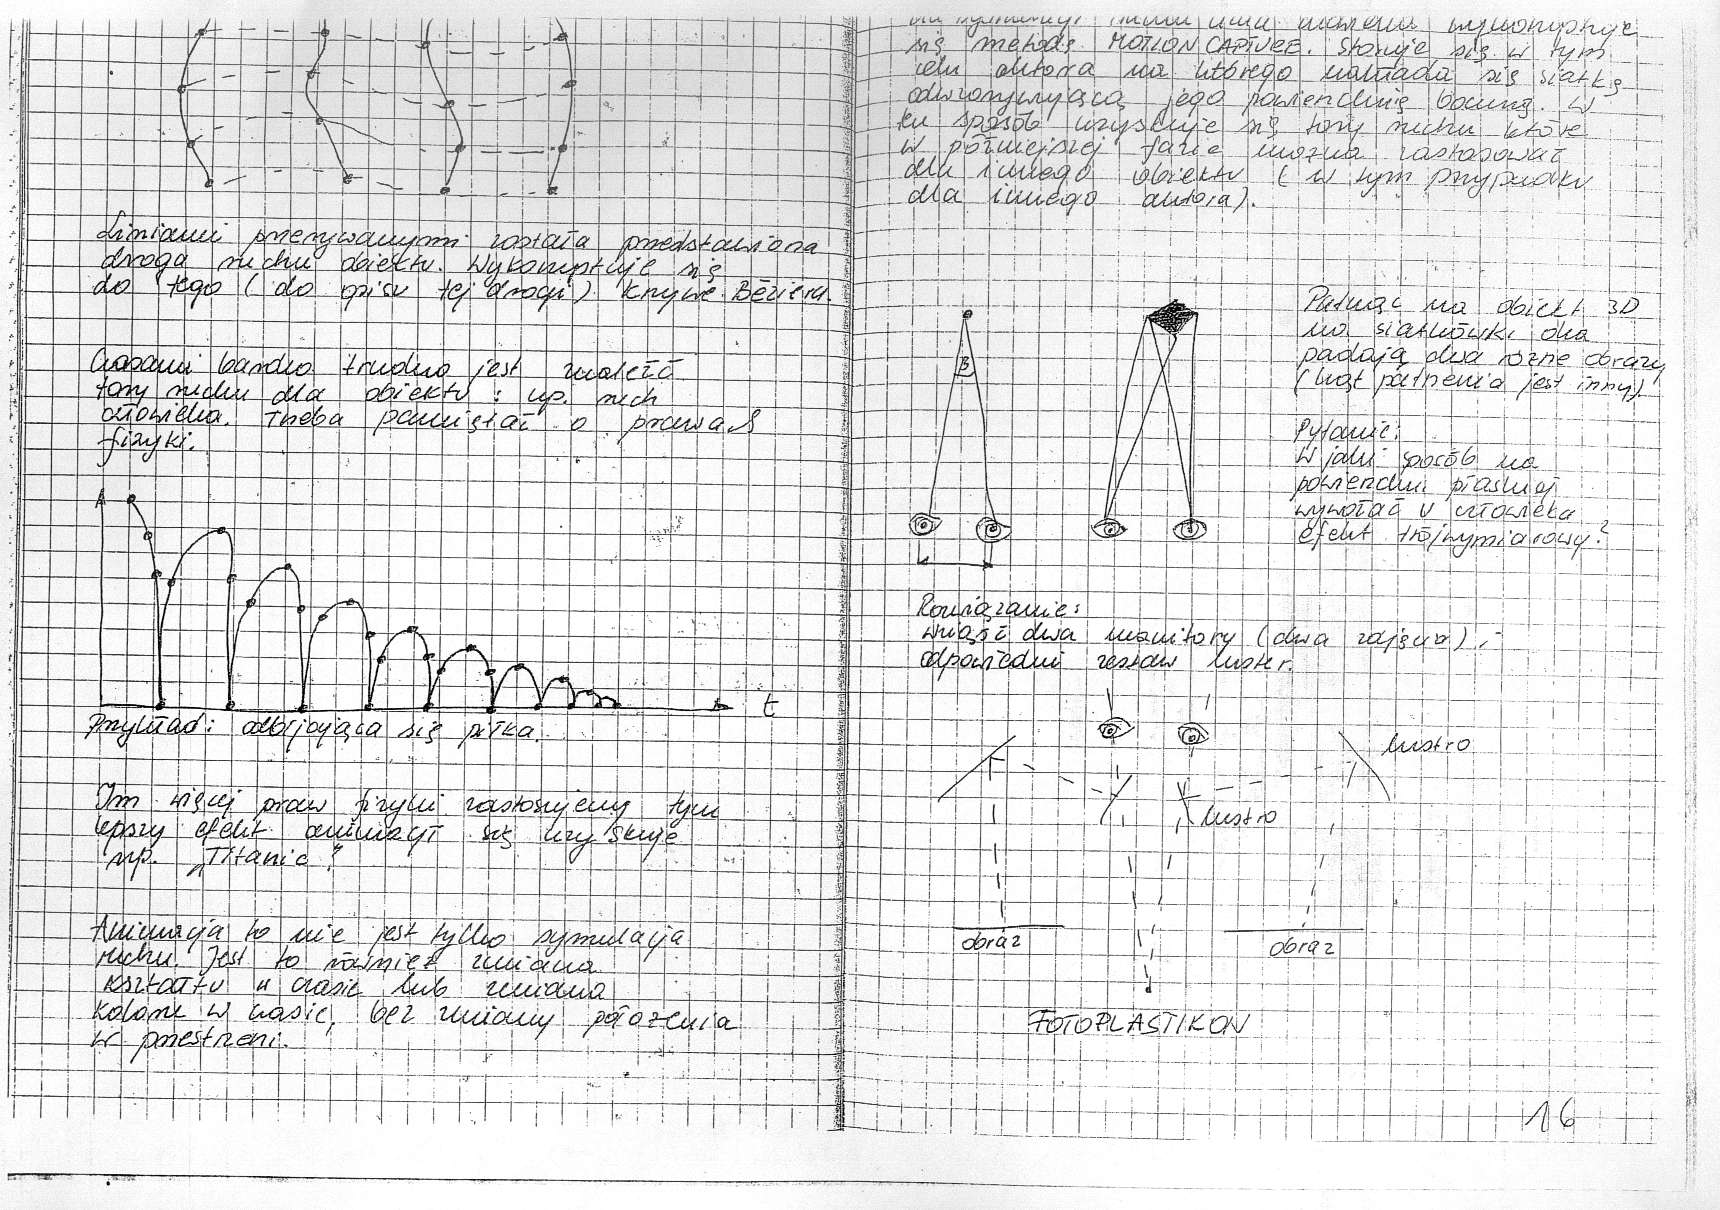 Liniami przerywanymi została przedstawiona
droga ruchu obiektu. Wykorzystuje się
do tego (do opisu tej drogi) krzywe Béziera.
Czasami bardzo trudno jest znaleźć
tory ruchu dla obiektu: np. ruch
człowieka. Trzeba pamiętać o prawach
fizyki.
A
t
Przykład: odbijająca się piłka.
Im więcej praw fizyki zastosujemy tym
lepszy efekt animacji się uzyskuje
np. „Titanic”
Animacja to nie jest tylko symulacja
ruchu. Jest to również zmiana
kształtu w czasie lub zmiana
koloru w czasie, bez zmiany położenia
w przestrzeni.
się metodę MOTION CAPTURE. Stosuje się w tym
celu aktora na którego nakłada się siatkę
odwzorowującą jego powierzchnię boczną. W
ten sposób uzyskuje się tory ruchu które
w późniejszej fazie można zastosować
dla innego obiektu (w tym przypadku
dla innego aktora).
B
Patrząc na obiekt 3D
na siatkówki oka
padają dwa różne obrazy
(kąt patrzenia jest inny).
Pytanie:
W jaki sposób na
powierzchni płaskiej
wywołać u człowieka
efekt trójwymiarowy?
Rozwiązanie:
wziąść dwa monitory (dwa zdjęcia) i
odpowiedni zestaw luster.
lustro
lustro
obraz
obraz
FOTOPLASTIKON
16